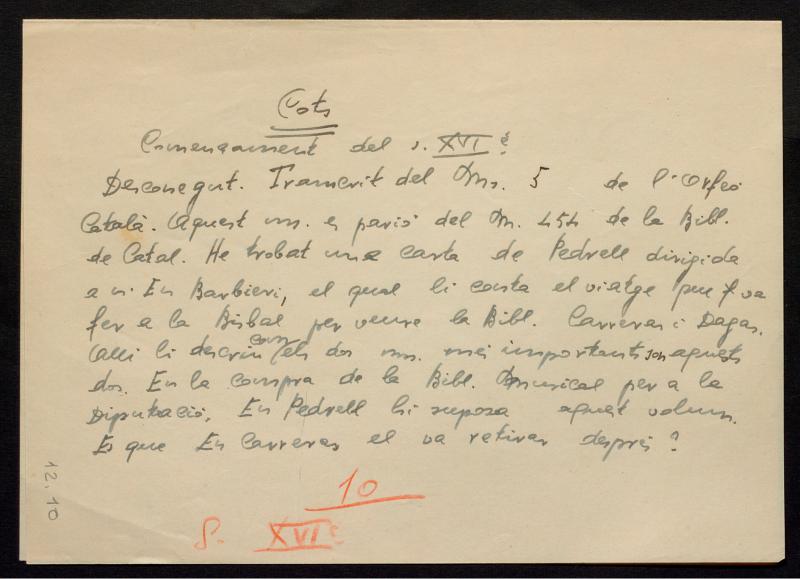 Cots
Començament del s. XVIè
Desconegut. Transcrit del Ms. 5 de l'Orfeó
Català. Aquest ms. es parió del M. 454 de la Bibl.
de Catal. He trobat una carta de Pedrell dirigida
a n'En Barbieri, el qual li conta el viatge que va
fer a la Bisbal per veure la Bibl. Carreras i Dagas.
Alli li descriu com els dos ms. més importants son aquests
dos. En la compra de la Bibl. musical per a la
Diputació, En Pedrell hi suposa aquest volum.
Es que En Carreras el va retirar després?
10
S. XVIè
12.10